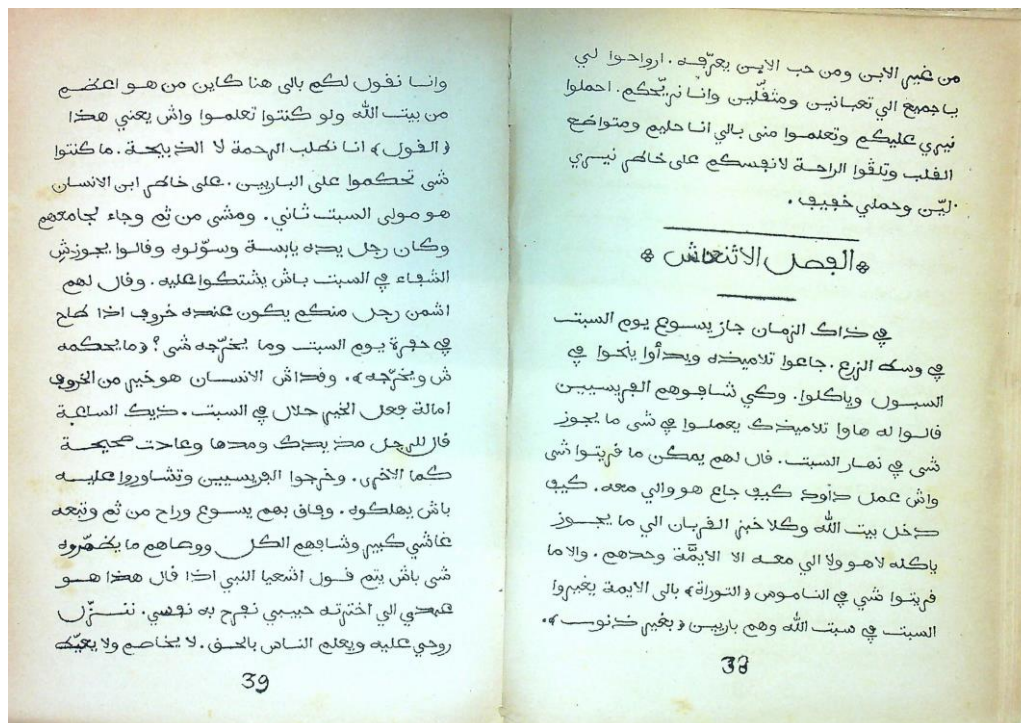 من غير الابن ومن حب الابن يعرّفه. ارواحوا لي
ياجميع الي تعبانين ومثقّلين وانا نريّحكم. احملوا
نيري عليكم وتعلموا منى بالي انا حليم ومتواضع
القلب وتلڨوا الراحة لانفسكم على خاطر نيري
ليّن وحملي خفيف.
* الفصل الاثنعاش *
في ذاك الزمان جاز يسوع يوم السبت
في وسط الزرع. جاعوا تلاميذه وبدأوا ينحوا في
السبول وياكلوا. وكي شافوهم الفريسيين
قالوا له هاوا تلاميذك يعملوا في شى ما يجوز
شى في نهار السبت. قال لهم يمكن ما قريتوا شى
واش عمل داود كيف جاع هو والي معه. كيف
دخل بيت الله وكلا خبز القربان الي ما يجوز
ياكله لا هو ولا الي معه الا الايمّة وحدهم. والا ما
قريتوا شي في الناموس (التوراة) بالى الايمة يغيروا
السبت في سبت الله وهم باريين (بغير ذنوب).
38
وانا نقول لكم بالى هنا كاين من هو اعظم
من بيت الله ولو كنتوا تعلموا واش يعني هذا
(القول) انا نطلب الرحمة لا الذبيحة. ما كنتوا
شى تحكموا على الباريين. على خاطر ابن الانسان
هو مولى السبت ثاني. ومشى من ثم وجاء لجامعهم
وكان رجل يده يابسة وسوّلوه وقالوا يجوزش
الشفاء في السبت باش يشتكوا عليه. وقال لهم
اشمن رجل منكم يكون عنده خروف اذا طاح
في حفرة يوم السبت وما يخرّجه شى؟ (ما يحكمه
ش ويخرّجه). وقداش الانسان هو خير من الخروف
امالة فعل الخير حلال في السبت. ذيك الساعة
قال للرجل مذ يدك ومدها وعادت صحيحة
كما الاخرى. وخرجوا الفريسيين وتشاوروا عليه
باش يهلكوه. وفاق بهم يسوع وراح من ثم وتبعه
غاشي كبير وشافهم الكل ووصاهم ما يظهّروه
شى باش يتم قول اشعيا النبي اذا قال هذا هو
عبدي الي اخترته حبيبي نفرح به نفسي. ننزّل
روحي عليه ويعلم الناس بالحق. لا يخاصم ولا يعيّط
39